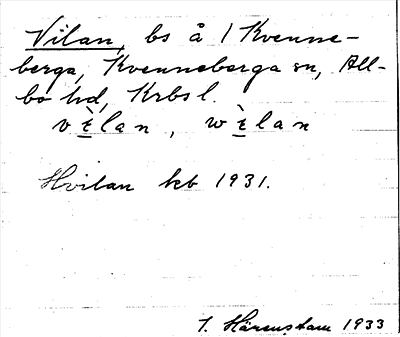 Vilan, bs å 1 Kvenne-
berga, Kvenneberga sn, All-
bo hd, Krbs l.
vɩ̀lan, wɩ̀lan
Hvilan kb 1931.
I. Härenstam 1933